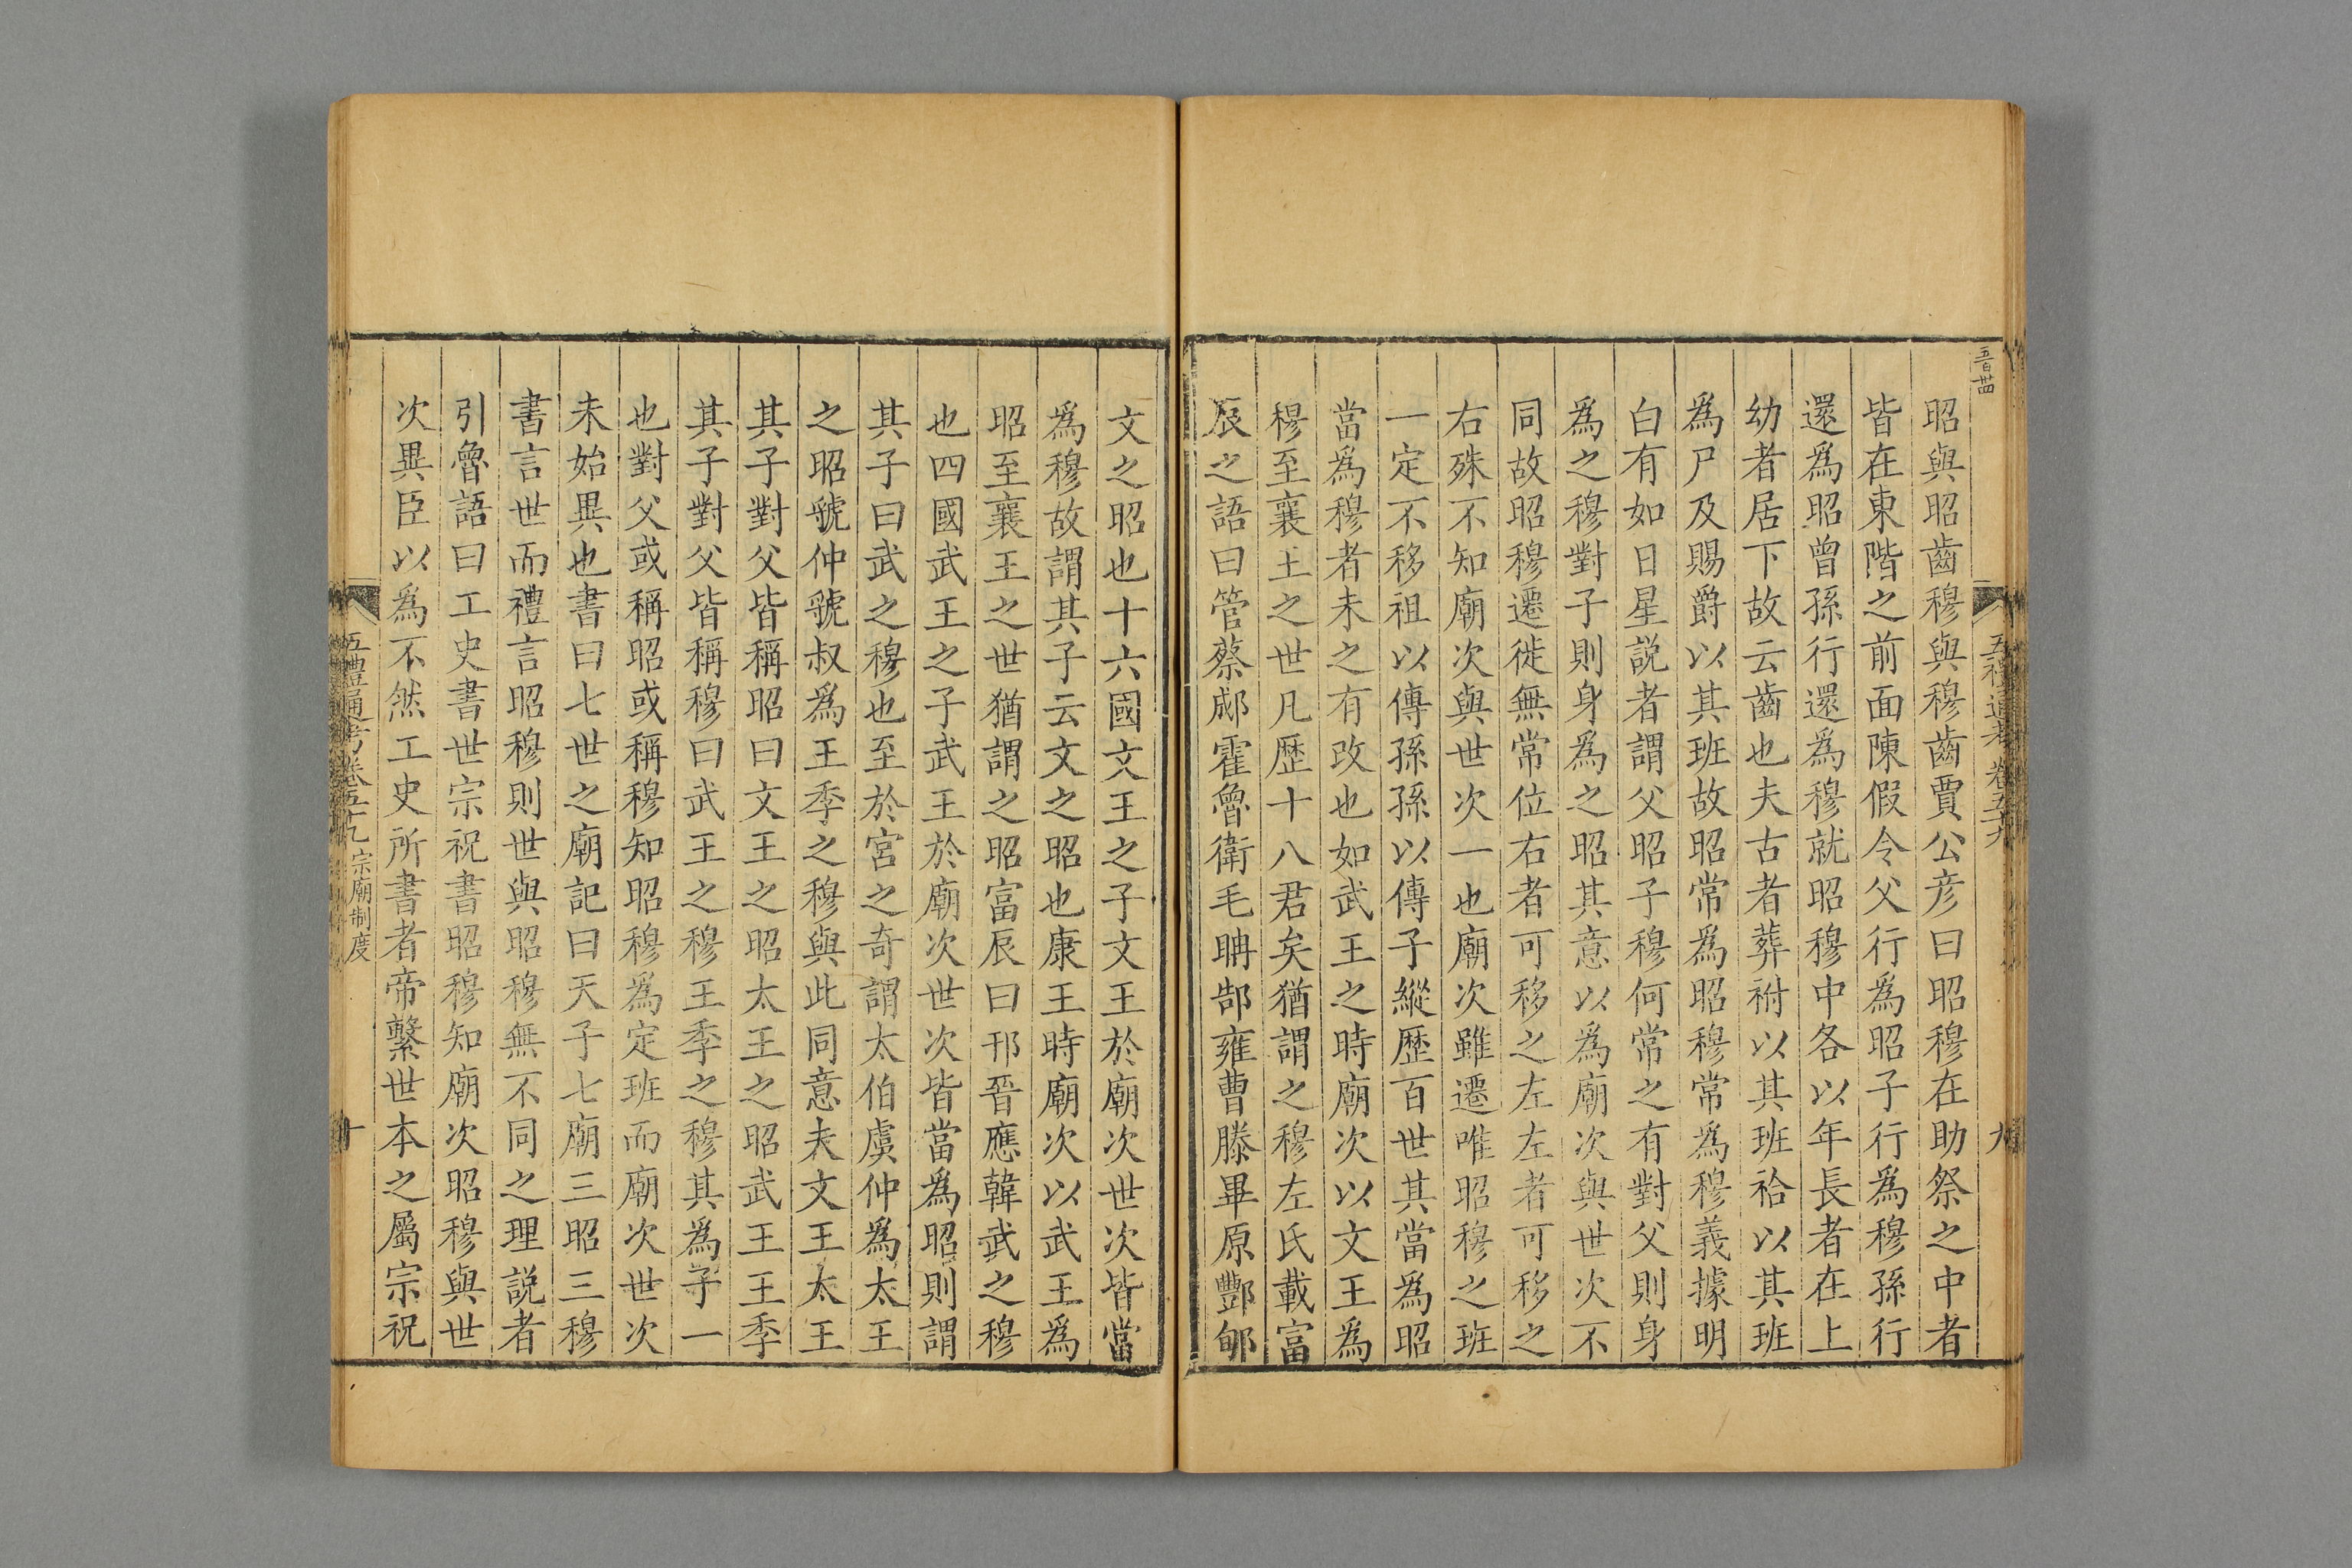 五禮通考 卷五十九
九
昭與昭齒穆與穆齒賈公彦曰昭穆在助祭之中者
皆在東階之前面陳假令父行爲昭子行爲穆孫行
還爲昭曾孫行還爲穆就昭穆中各以年長者在上
幼者居下故云齒也夫古者葬祔以其班祫以其班
爲尸及賜爵以其班故昭常爲昭穆常爲穆義據明
白有如日星説者謂父昭子穆何常之有對父則身
爲之穆對子則身爲之昭其意以爲廟次與世次不
同故昭穆遷徙無常位右者可移之左左者可移之
右殊不知廟次與世次一也廟次雖遷唯昭穆之班
一定不移祖以傳孫孫以傳子縱歷百世其當爲昭
當爲穆者未之有改也如武王之時廟次以文王爲
穆至襄王之世凡歷十八君矣猶謂之穆左氏載富
辰之語曰管蔡郕霍魯衛毛聃郜雍曹滕畢原酆郇
文之昭也十六國文王之子文王於廟次世次皆當
爲穆故謂其子云文之昭也康王時廟次以武王爲
昭至襄王之世猶謂之昭富辰曰邗晉應韓武之穆
也四國武王之子武王於廟次世次皆當爲昭則謂
其子曰武之穆也至於宮之奇謂太伯虞仲爲太王
之昭虢仲虢叔爲王季之穆與此同意夫文王太王
其子對父皆稱昭曰文王之昭太王之昭武王王季
其子對父皆稱穆曰武王之穆王季之穆其爲子一
也對父或稱昭或稱穆知昭穆爲定班而廟次世次
未始異也書曰七世之廟記曰天子七廟三昭三穆
書言世而禮言昭穆則世與昭穆無不同之理説者
引魯語曰工史書世宗祝書昭穆知廟次昭穆與世
次異臣以爲不然工史所書者帝繫世本之屬宗祝
五禮通考卷五十九 宗廟制度
十